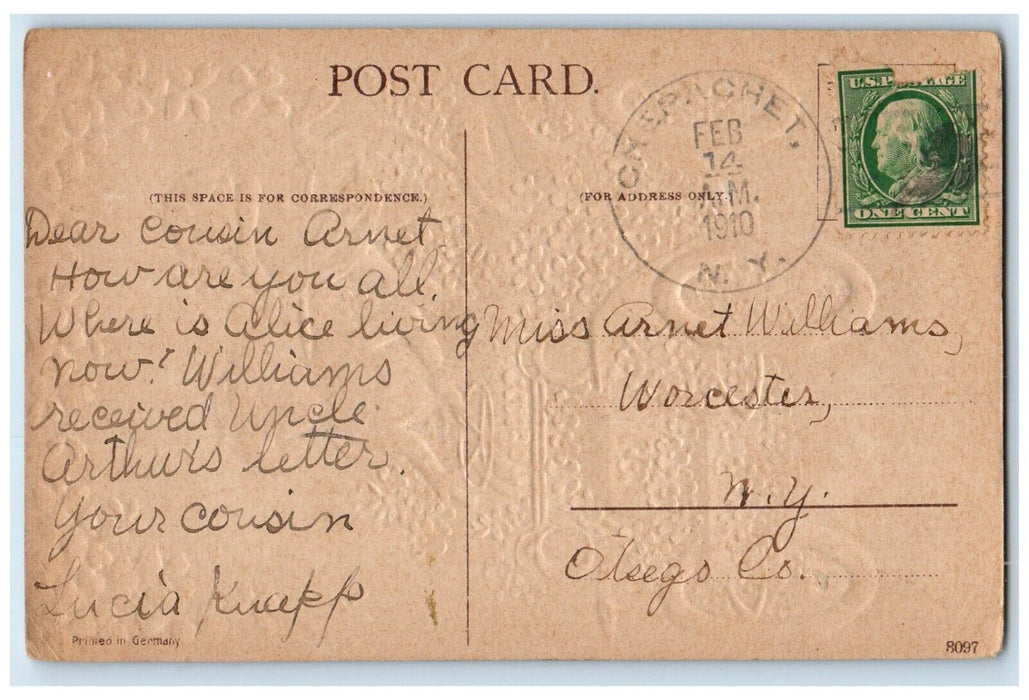 POST CARD.
(THIS SPACE IS FOR CORRESPONDENCE.)
(FOR ADDRESS ONLY.)
CHEPACHET,
FEB
14
A.M.
1910
N.Y.
U.S. POSTAGE
ONE CENT
Dear Cousin Arnet
How are you all.
Where is Alice living
now? Williams
received Uncle
Arthurs letter.
Your cousin
Lucia Knapp
Miss Arnet Williams,
Worcester,
N.Y.
Otsego Co.
Printed in Germany
8097